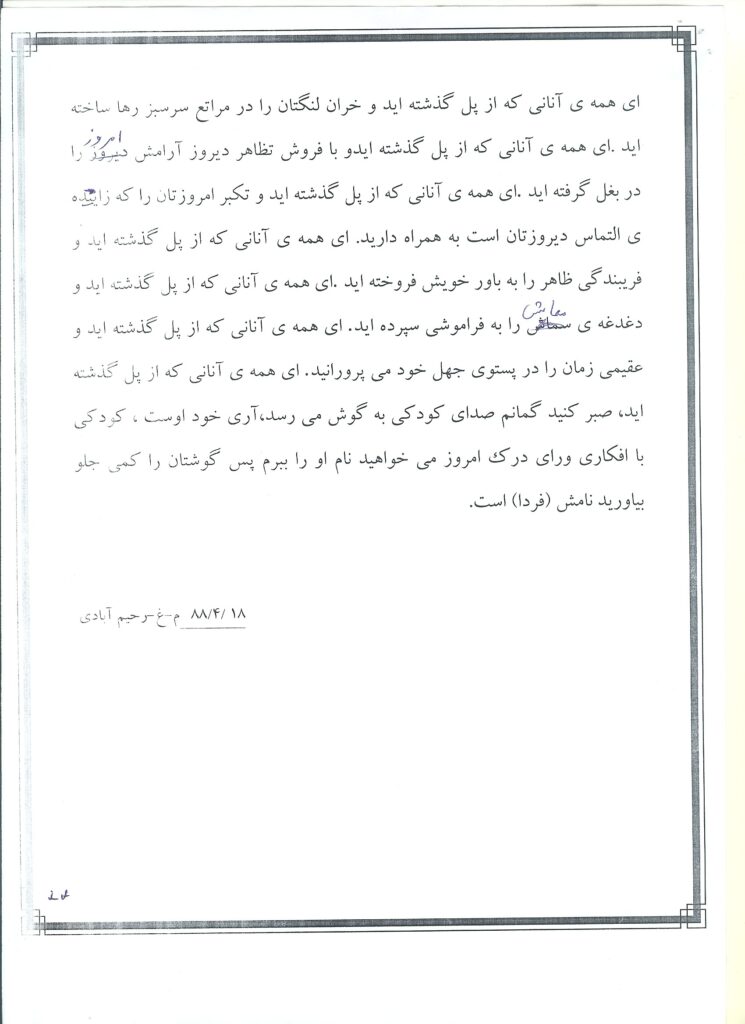 ای همه ی آنانی که از پل گذشته اید و خران لنگتان را در مراتع سرسبز رها ساخته
امروز
اید .ای همه ی آنانی که از پل گذشته ایدو با فروش تظاهر دیروز آرامش دیروز را
در بغل گرفته اید .ای همه ی آنانی که از پل گذشته اید و تکبر امروزتان را که زاییده
ی التماس دیروزتان است به همراه دارید. ای همه ی آنانی که از پل گذشته اید و
فریبندگی ظاهر را به باور خویش فروخته اید .ای همه ی آنانی که از پل گذشته اید و
معایش
دغدغه ی را به فراموشی سپرده اید. ای همه ی آنانی که از پل گذشته اید و
عقیمی زمان را در پستوی جهل خود می پرورانید. ای همه ی آنانی که از پل گذشته
اید، صبر کنید گمانم صدای کودکی به گوش می رسد،آری خود اوست ، کودکی
با افکاری ورای درک امروز می خواهید نام او را ببرم پس گوشتان را کمی جلو
بیاورید نامش (فردا) است.
۸۸/۴/۱۸ م-غ-رحیم آبادی